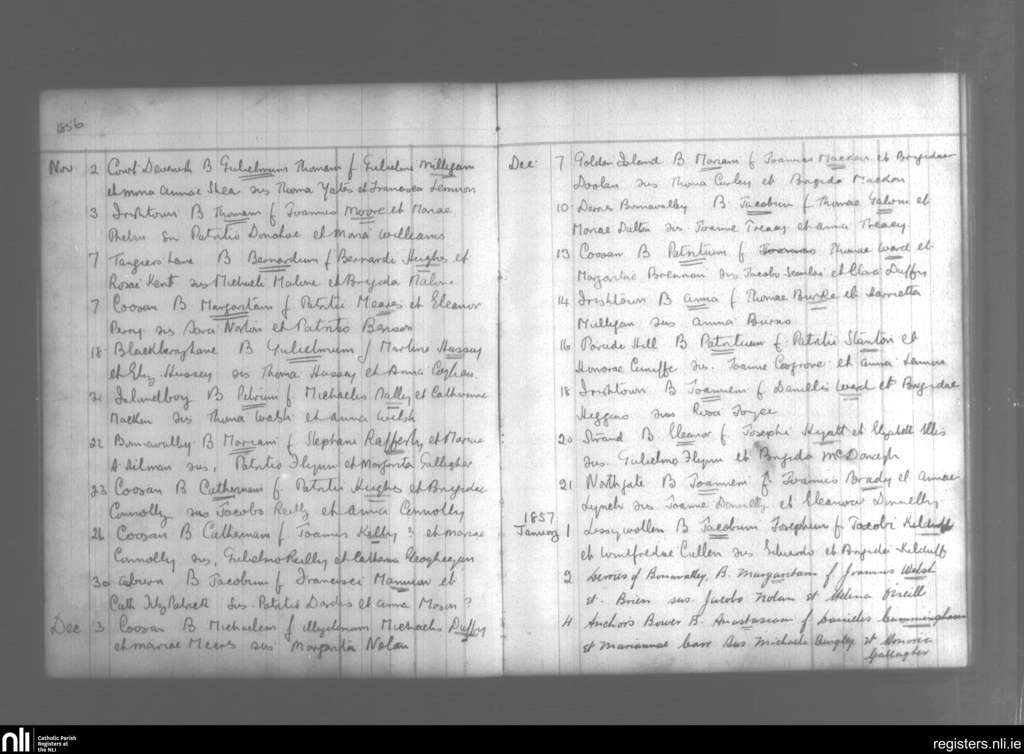 1856
Nov 2 Court Devenish B Gulielmum Thomam f Gulielmi Milligan
et mona Annae Shea sus Thoma Yates et Francisca Lennon
3 Irishtown B Thomam f Joannis Moore et Mariae
Phelan Sus Patritio Donohoe et Maria Williams
7 Tangiers Lane B Bernardum f Bernardi Hughes et
Rosae Kent sus Michaele Malone et Brigida Malone
7 Coosan B Margaritam f Patritii Meares et Eleanor
Perry sus Sara Norton et Patritio Benson
18 Blackberrylane B Gulielmum f Martini Hussey
et Eliz. Hussey sus Thoma Hussey et Anna
21 B Petrum f Michaelis Nally et Catherinae
Macken sus Thoma Walsh et Anna Welsh
22 Bonnavalley B Mariam f Stephani Rafferty et Mariae
sus. Patritio Flynn et Margarita Gallagher
23 Coosan B Catherinam f Patritii Hughes et Brigidae
Connolly sus Jacobo Reilly et Anna Connolly
26 Coosan B Catherinam f Joannis Kelly ? et Mariae
Connolly sus. Gulielmo Reilly et Catharina Geoghegan
30 B Jacobum f Francisci Mannion et
Cath FitzPatrick Sus. Patritio Dardis et Anna Moran ?
Dec 3 Coosan B Michaelem f Michaelis Duffy
et Mariae Meers sus Margarita Nolan
Dec 7 Golden Island B Mariam f Joannis Macken et Brigidae
Doolan sus Thoma Curley et Brigida Macken
10 Derries Bonnavalley B Jacobum f Thomae Galvin et
Mariae Dalton sus. Joanne Treacy et Anna Treacy.
13 Coosan B Patritium f Thomae Ward et
Margaritae Brennan sus Jacobo Scanlan et Clara Duffy
14 Irishtown B Anna f Thomae Burke et Harrietta
Mulligan sus Anna Burns
16 Parade Hill B Patritium f. Patritii Stanton et
Honorae Cunniffe sus. Joanne Cosgrove et Anna Lennon
18 Irishtown B Joannem f Danielis Ward et Brigidae
Heggins sus Rosa Joyce
20 Strand B Eleanor f Josephi Hyatt et Elizabeth Ellis
sus. Gulielmo Flynn et Brigida McDonagh
21 Northgate B Joannem f Joannis Brady et Annae
Lynch sus Joanne Donnelly et Eleanora Donnelly
1857
January 1 Lissywollen B Jacobum Josephum f Jacobi Kilduff
et Winifredae Cullen sus Eduardo et Brigida Kilduff
2 Derries of Bonavalley, B. Margaritam f Joannis Welsh
et Brien sus. Jacobo Nolan et Helena O'Neill
4 Anchors Bower B. Anastasiam f Danielis Cunningham
et Mariannae Carr Sus Michaele Quigley et Honoria
Gallagher
nli Catholic Parish
Registers at
the NLI
registers.nli.ie